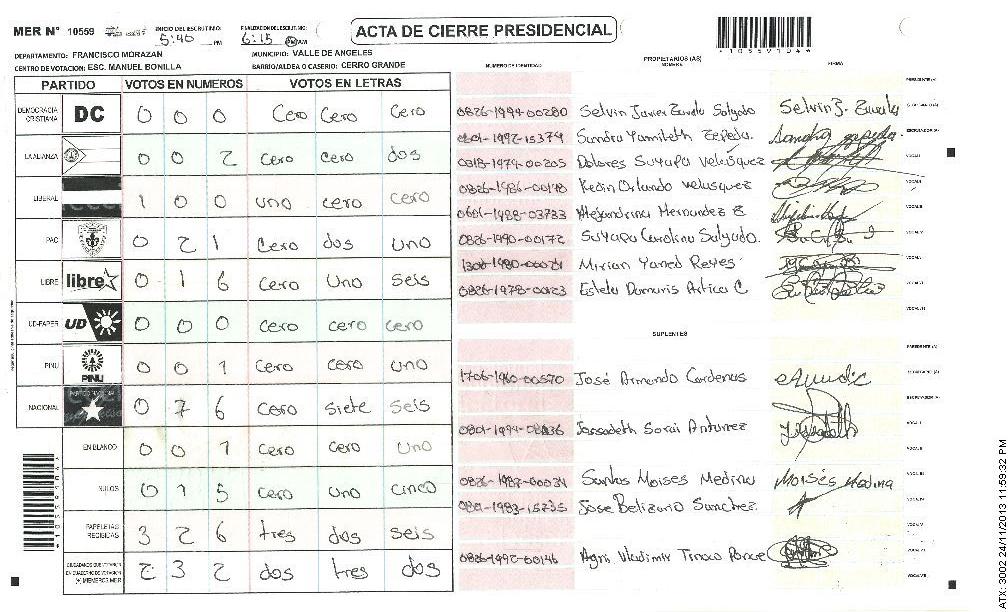 MER N° 10559
INICIO DEL ESCRUTINIO: 5:40 PM
FINALIZACION DEL ESCRUTINIO: 6:15 AM
ACTA DE CIERRE PRESIDENCIAL
DEPARTAMENTO: FRANCISCO MORAZAN
MUNICIPIO: VALLE DE ANGELES
CENTRO DE VOTACION: ESC. MANUEL BONILLA
BARRIO/ALDEA O CASERIO: CERRO GRANDE
PARTIDO VOTOS EN NUMEROS VOTOS EN LETRAS
DEMOCRACIA CRISTIANA DC 0 0 0 Cero Cero Cero
LA ALIANZA 0 0 2 cero cero dos
LIBERAL 1 0 0 uno cero cero
PAC 0 2 1 Cero dos uno
LIBRE libre 0 1 6 cero Uno seis
UD-FAPER UD 0 0 0 cero cero cero
PINU PINU 0 0 1 cero cero uno
NACIONAL 0 7 6 cero siete seis
EN BLANCO 0 0 1 cero cero uno
NULOS 0 1 5 cero uno cinco
PAPELETAS RECIBIDAS 3 2 6 tres dos seis
CIUDADANOS QUE VOTARON EN CUADERNO DE VOTACION (+) MIEMBROS MER 2 3 2 dos tres dos
NUMERO DE IDENTIDAD PROPIETARIOS (AS) NOMBRE FIRMA
0826-1994-00280 Selvin Javier Zavala Salgado Selvin J. Zavala
0801-1992-15374 Sandra Yamileth Zepeda.
0318-1974-00205 Dolores Suyapa Velásquez
0826-1986-00178 Kevin Orlando Velasquez
0601-1988-03733 Alejandrina Hernandez
0826-1990-00172 Suyapa Carolina Salgado.
Mirian Yaned Reyes
0826-1978-00123 Estela Damaris Artica C
SUPLENTES
1706-1960-00570 José Armando Cardenas
Jossadeth Sarai Antunez
0826-1987-00034 Santos Moises Medina Moisés Medina
0801-1983-15735 Jose Belizario Sanchez.
0826-1992-00146 Agni Vladimir Tinoco Ponce
ATX: 3002 24/11/2013 11:59:32 PM